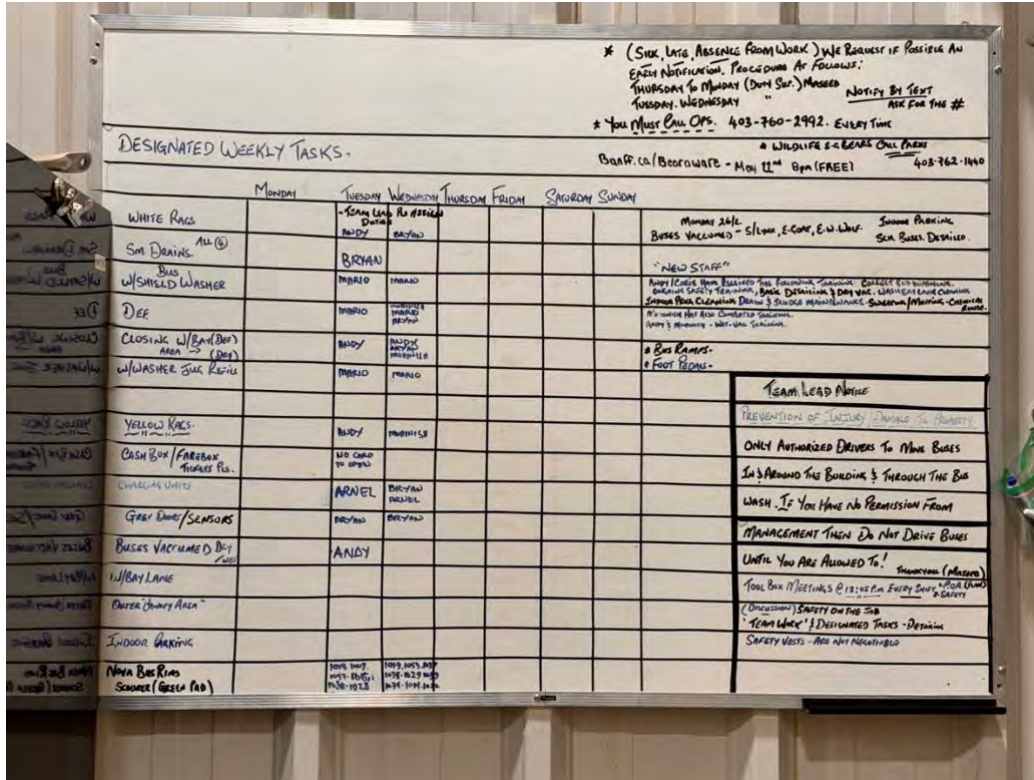 * (SICK, LATE, ABSENCE FROM WORK) WE REQUEST IF POSSIBLE AN
EARLY NOTIFICATION. PROCEDURE AS FOLLOWS:
THURSDAY TO MONDAY (DUTY SUP.) MASEED
TUESDAY. WEDNESDAY "
NOTIFY BY TEXT
ASK FOR THE #
* YOU MUST CALL OPS. 403-760-2992. EVERY TIME
* WILDLIFE E.G BEARS CALL PARKS
403-762-1440
Banff.ca/Bearaware - May 11th 8pm (FREE)
DESIGNATED WEEKLY TASKS.
MONDAY TUESDAY WEDNESDAY THURSDAY FRIDAY SATURDAY SUNDAY
- TEAM LEAD TO ASSIGN
DUTIES
WHITE RAGS ANDY BRYAN
SM DRAINS. ALL (4) BRYAN
BUS
W/SHIELD WASHER MARIO MARIO
DEF MARIO MARIO
BRYAN
CLOSING W/BAY (DEF) ANDY ANDY
AREA → (DEY) BRYAN
W/WASHER JUG REFILL MARIO MARIO
YELLOW RAGS. ANDY
CASH BOX/FAREBOX NO CARD
TICKETS PLS. TO OPEN
CHARGING UNITS ARNEL BRYAN
ARNEL
GREY DOORS/SENSORS BRYAN BRYAN
BUSES VACUUMED DEY ANDY
W/BAY LANE
OUTER "COUNTY AREA"
INDOOR PARKING
NOVA BUS RIMS
SCOURER (GREEN PAD)
MONDAY 26/2
BUSES VACUUMED - S/LYNX, E.GOAT, E.W.WOLF.
INDOOR PARKING
BUSES DETAILED.
"NEW STAFF"
ANDY/CORIE HAVE RECEIVED THE FOLLOWING TRAINING.
SAFETY TRAINING, BASIC DETAILING & DRY VAC. WASHER LANE CLEANING
INDOOR PARK CLEANING DRAIN & SLUDGE MAINTENANCE - SWEEPING/MOPPING - CHEMICAL
HAS ALSO COMPLETED TRAINING.
ANDY & - WET-VAC TRAINING.
* BUS RAMPS -
* FOOT PEDALS -
TEAM LEAD NOTICE
PREVENTION OF INJURY DAMAGE TO PROPERTY
ONLY AUTHORIZED DRIVERS TO MOVE BUSES
IN & AROUND THE BUILDING & THROUGH THE BUS
WASH. IF YOU HAVE NO PERMISSION FROM
MANAGEMENT THEN DO NOT DRIVE BUSES
UNTIL YOU ARE ALLOWED TO!
THANKYOU (MASEED)
TOOL BOX MEETINGS @ 18:05 P.M EVERY SHIFT
* SAFETY
(DISCUSSION) SAFETY ON THE JOB
"TEAM WORK" & DESIGNATED TASKS - DETAILING
SAFETY VESTS - ARE NOT NEGOTIABLE